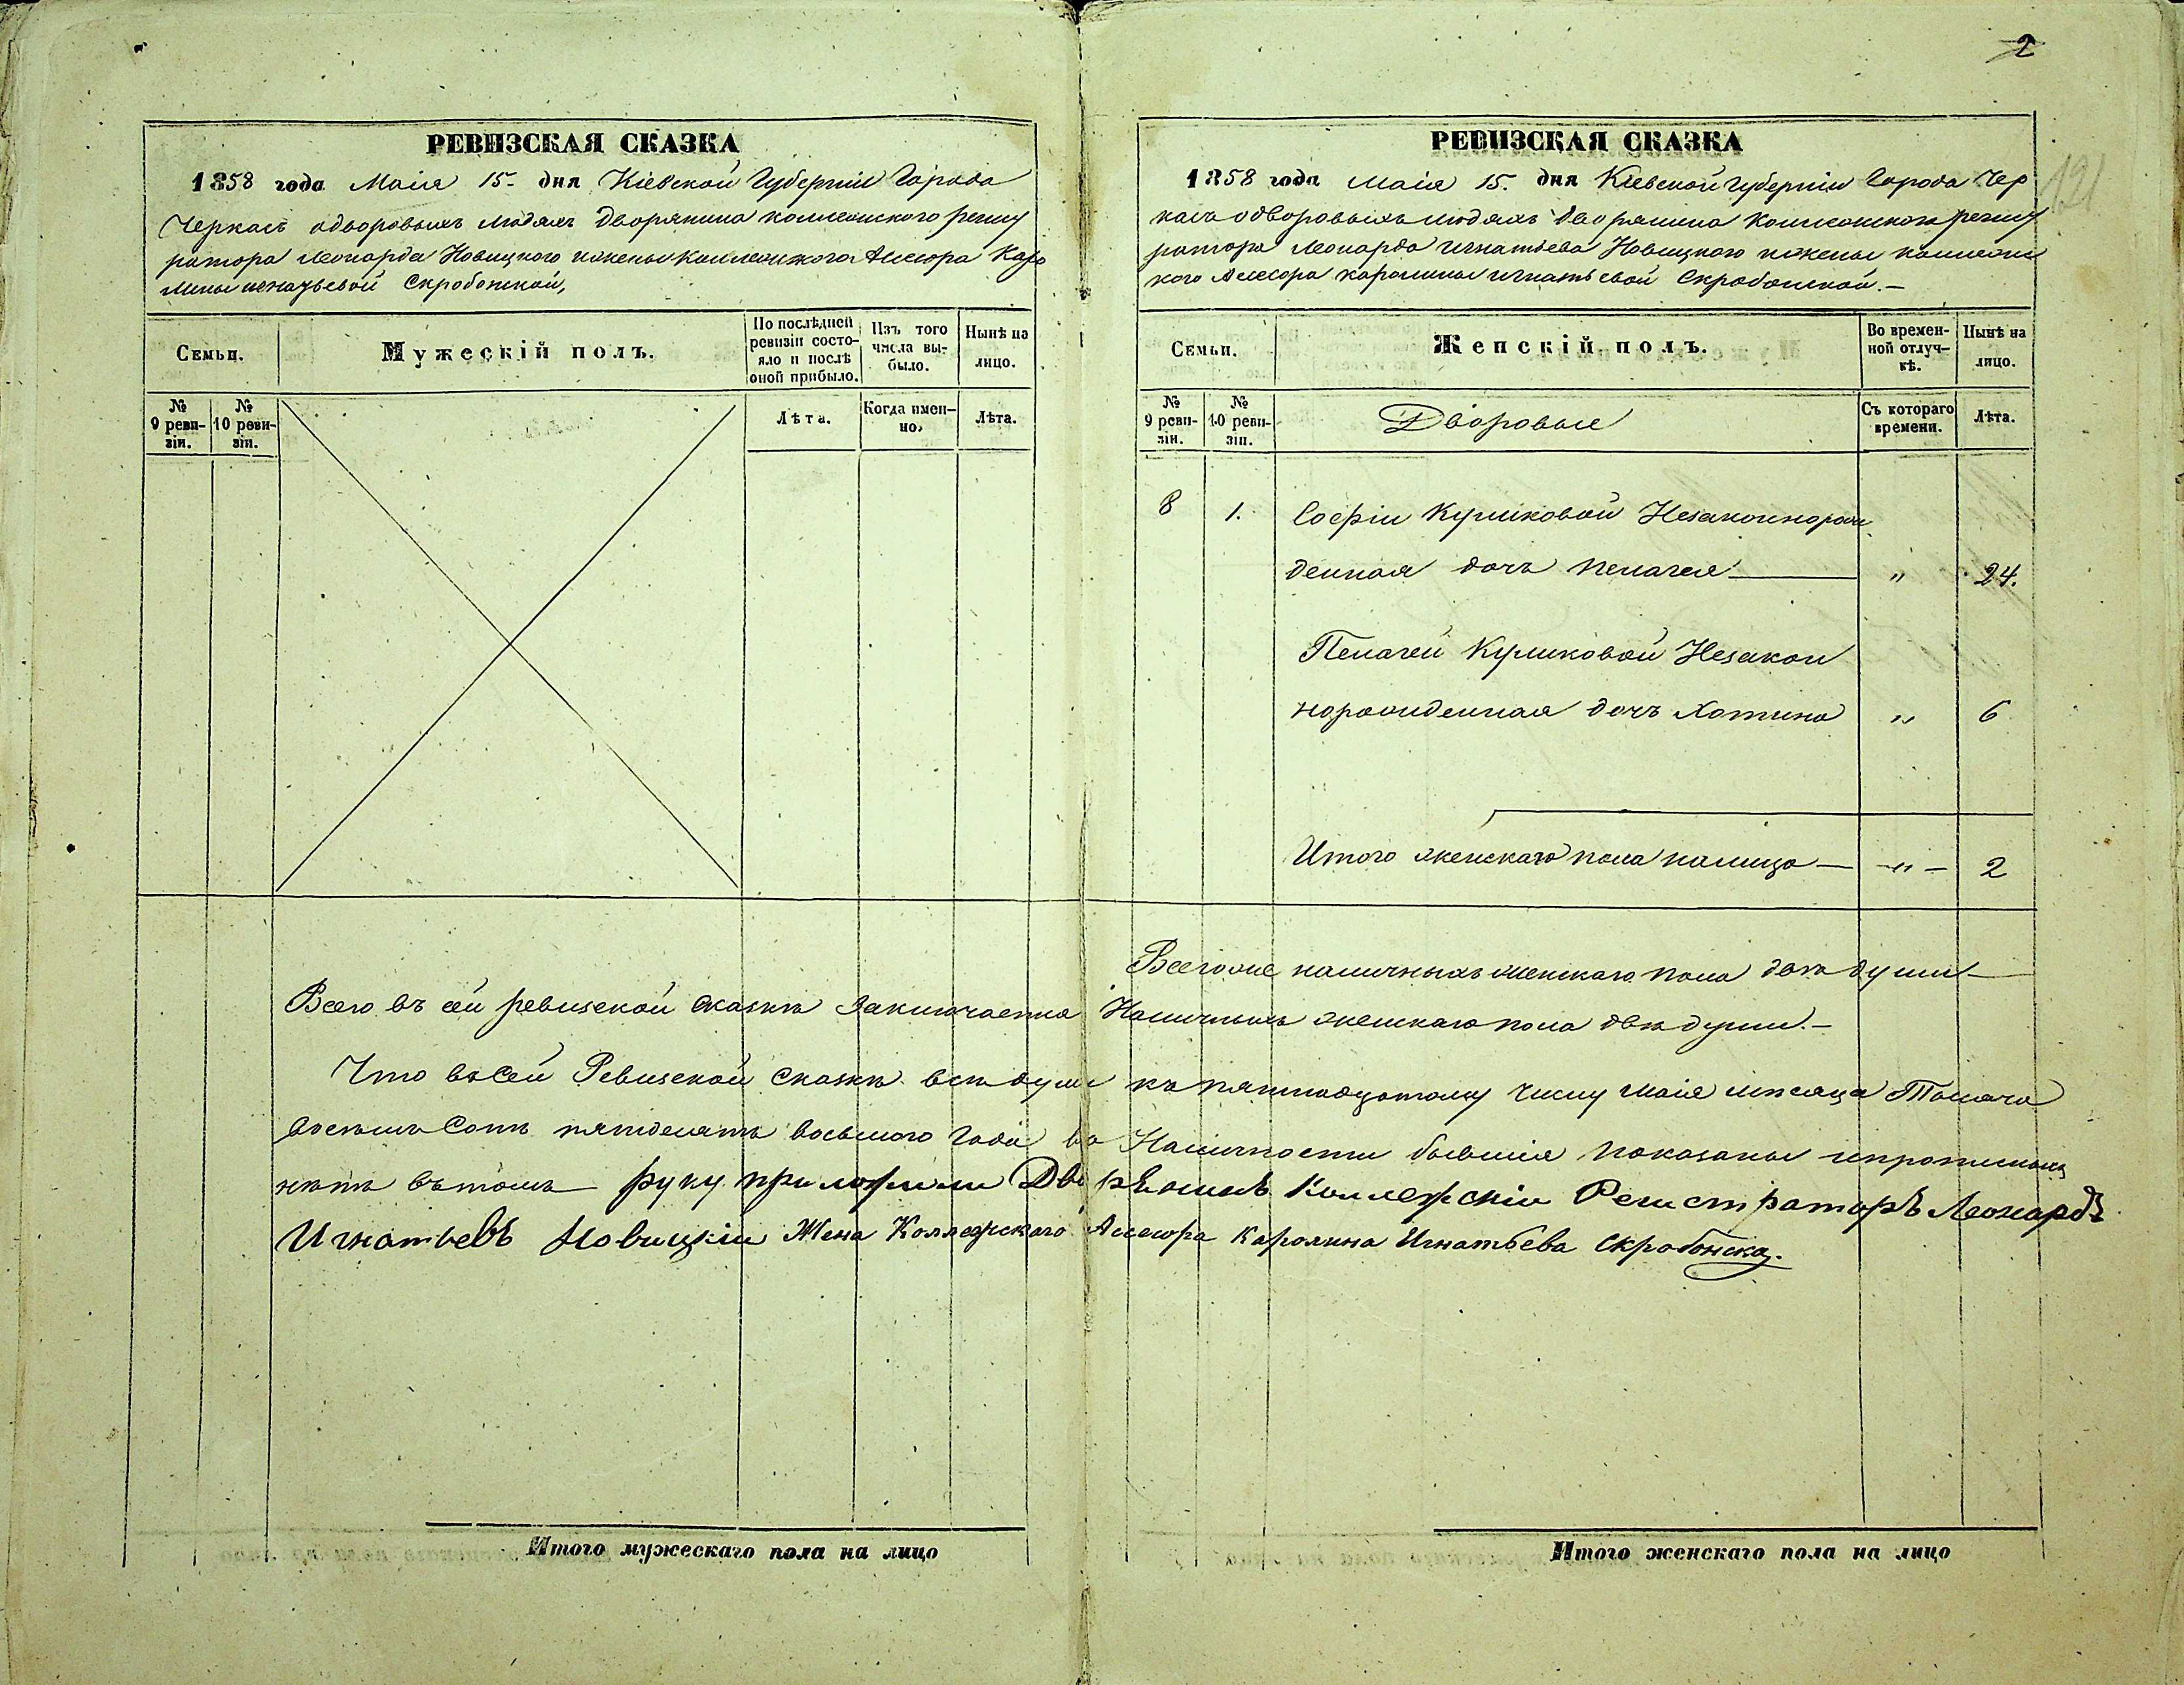 2
РЕВИЗСКАЯ СКАЗКА
1858 года Маія 15. дня Кіевской Губерніи Города
Черкасъ одворовыхъ людяхъ дворянина коллежского регист
ратора Леонарда Новицкого ижены коллежского Ассесора Каро
лины игнатьевой Скробонской,
Семьи.
Мужескій полъ.
По послѣдней ревизіи состояло и послѣ оной прибыло.
Изъ того числа выбыло.
Нынѣ на лицо.
№ 9 ревизіи.
№ 10 ревизіи.
Лѣта.
Когда именно.
Лѣта.
Итого мужескаго пола на лицо
РЕВИЗСКАЯ СКАЗКА
1858 года Маія 15. дня Кіевской губерніи Города Чер
касъ одворовыхъ людяхъ дворянина Коллежскаго регист
ратора Леонарда игнатьева Новицкого ижены коллежс
кого Ассесора каролины игнатьевой Скробонской.—
121
Семьи.
Женскій полъ.
Во временной отлучкѣ.
Нынѣ на лицо.
№ 9 ревизіи.
№ 10 ревизіи.
Дворовые
Съ котораго времени.
Лѣта.
8 1. Софіи Куликовой Незаконнорож
денная дочъ пелагея — " 24.
Пелагеи Куликовой Незакон
норожденная дочъ Хотина " 6
Итого женскаго пола налицо — " — 2
Всего же наличныхъ женскаго пола двѣ души —
Всего въ сей ревизской сказкѣ Заключается Наличныхъ женскаго пола двѣ души. —
Что въ Сей Ревизской Сказкѣ всѣ души къ пятнадцатому числу маія мѣсяца Тысяча
восемь Сотъ пятдесятъ восьмого Года въ Наличности бывшія показаны
нѣтъ въ томъ руку приложили Дворянинъ Коллежскій Регистраторъ Леонардъ
Игнатьевъ Новицкій Жена Коллежского Ассесора Каролина Игнатьева Скробонска.
Итого женскаго пола на лицо